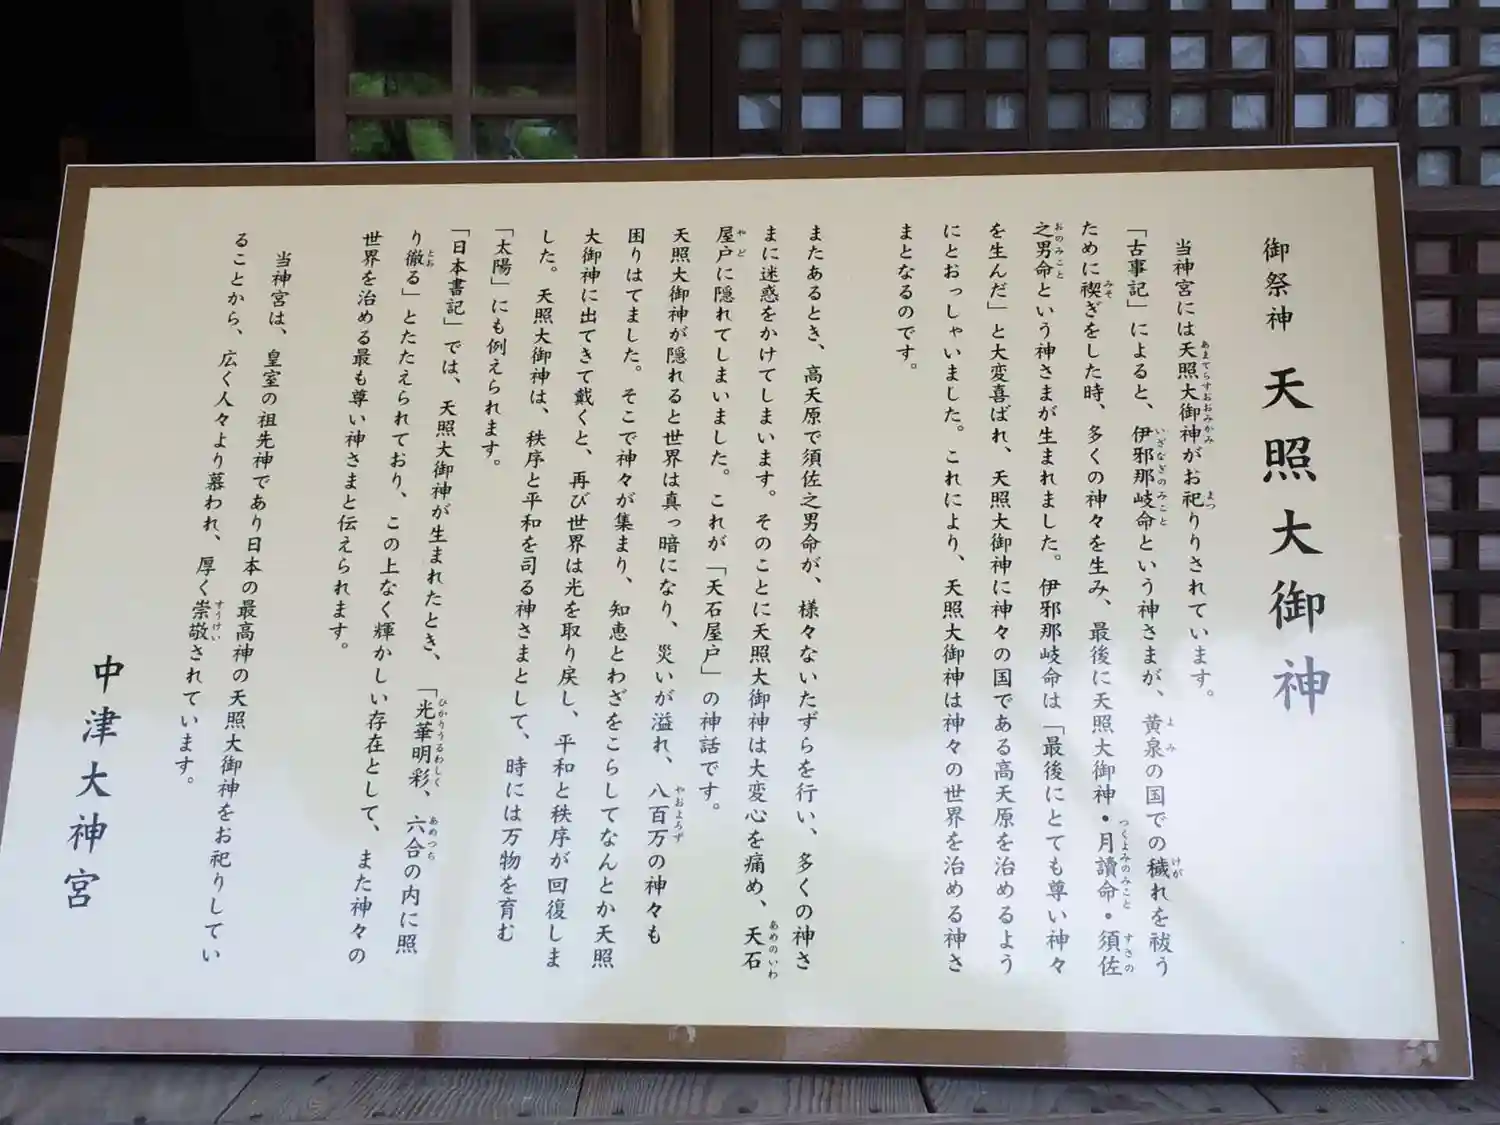 御祭神 天照大御神
当神宮には天照大御神がお祀りりされています。
「古事記」によると、伊邪那岐命という神さまが、黄泉の国での穢れを祓う
ために禊ぎをした時、多くの神々を生み、最後に天照大御神・月讀命・須佐
之男命という神さまが生まれました。伊邪那岐命は「最後にとても尊い神々
を生んだ」と大変喜ばれ、天照大御神に神々の国である高天原を治めるよう
にとおっしゃいました。これにより、天照大御神は神々の世界を治める神さ
まとなるのです。
またあるとき、高天原で須佐之男命が、様々ないたずらを行い、多くの神さ
まに迷惑をかけてしまいます。そのことに天照大御神は大変心を痛め、天石
屋戸に隠れてしまいました。これが「天石屋戸」の神話です。
天照大御神が隠れると世界は真っ暗になり、災いが溢れ、八百万の神々も
困りはてました。そこで神々が集まり、知恵とわざをこらしてなんとか天照
大御神に出てきて戴くと、再び世界は光を取り戻し、平和と秩序が回復しま
した。天照大御神は、秩序と平和を司る神さまとして、時には万物を育む
「太陽」にも例えられます。
「日本書記」では、天照大御神が生まれたとき、「光華明彩、六合の内に照
り徹る」とたたえられており、この上なく輝かしい存在として、また神々の
世界を治める最も尊い神さまと伝えられます。
当神宮は、皇室の祖先神であり日本の最高神の天照大御神をお祀りしてい
ることから、広く人々より慕われ、厚く崇敬されています。
中津大神宮